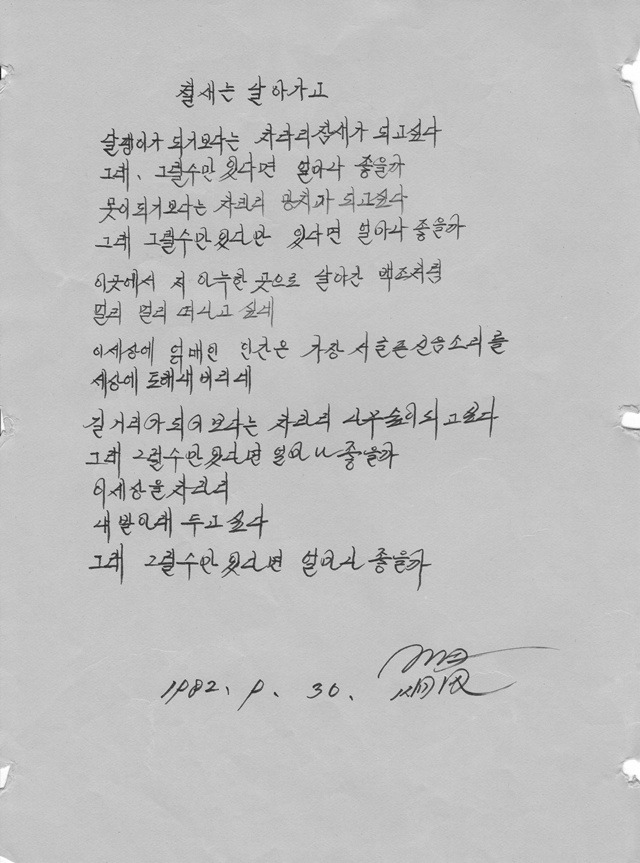 철새는 날아가고
달팽이가 되기보다는 차라리 참새가 되고싶다
그래, 그럴수만 있다면 얼마나 좋을까
못이되기보다는 차라리 망치가 되고싶다
그래 그럴수만있다면 있다면 얼마나 좋을까
이곳에서 저 아늑한 곳으로 날아간 백조처럼
멀리 멀리 떠나고 싶네
이세상에 얽매인 인간은 가장 서글픈신음소리를
세상에 토해내 버리네
길거리가되기보다는 차라리 나무숲이되고싶다
그래 그럴수만있다면 얼마나 좋을까
이세상을차라리
내발아래 두고 싶다
그래 그럴수만 있다면 얼마나 좋을까
1982. 9. 30.